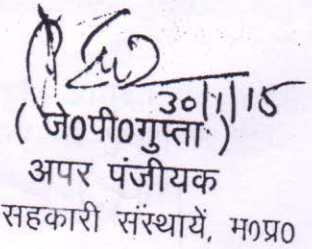 30/1/15
( जे0पी0गुप्ता )
अपर पंजीयक
सहकारी संस्थायें, म0प्र0